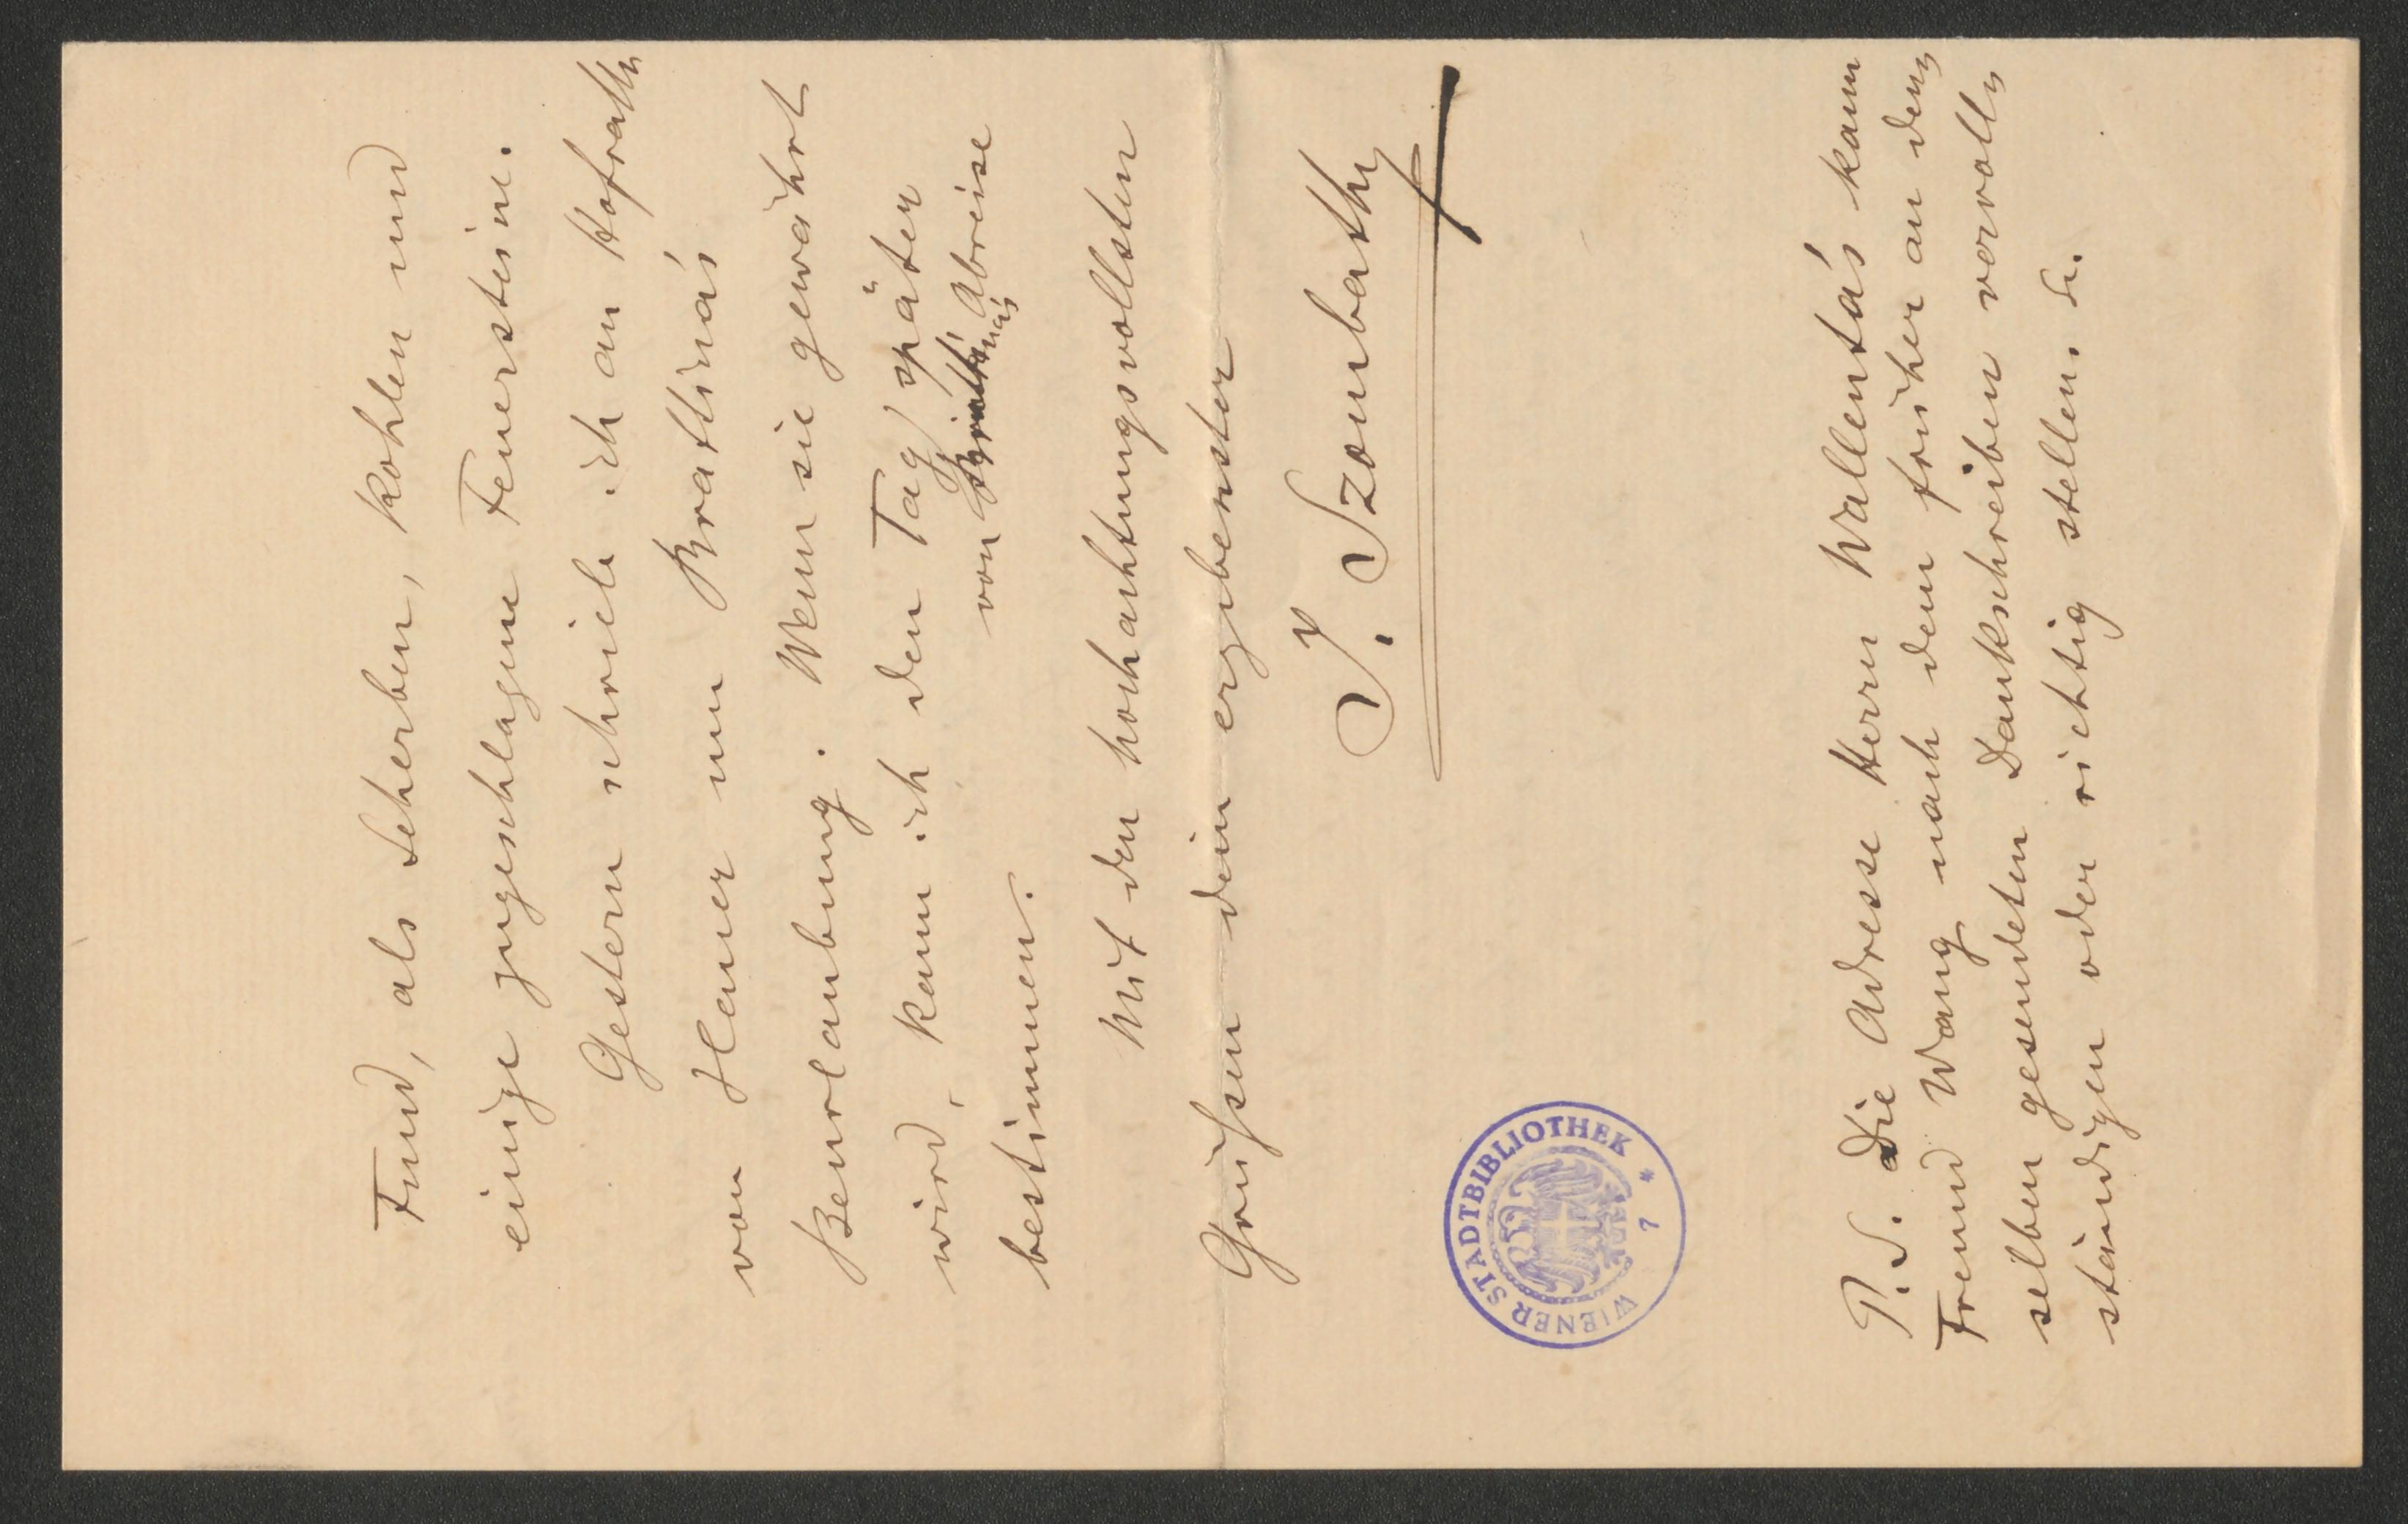 Fund, als Scherben, Kohlen und
einige zugeschlagene Feuersteine.
Gestern schrieb ich an Hofrath
von Hauer um Bratina's
Beurlaubung. Wenn sie gewährt
wird, kann ich den Tag später
von Bratina's Abreise
bestimmen.
Mit den hochachtungsvollsten
Grüßen dein ergebenster
J. Szombathy
WIENER STADTBIBLIOTHEK * 7
P. S. Die Adresse Herrn Wallenta's kann
Freund Wang nach dem früher an den-
selben gesendeten Dankschreiben vervoll-
ständigen oder richtig stellen. Sz.